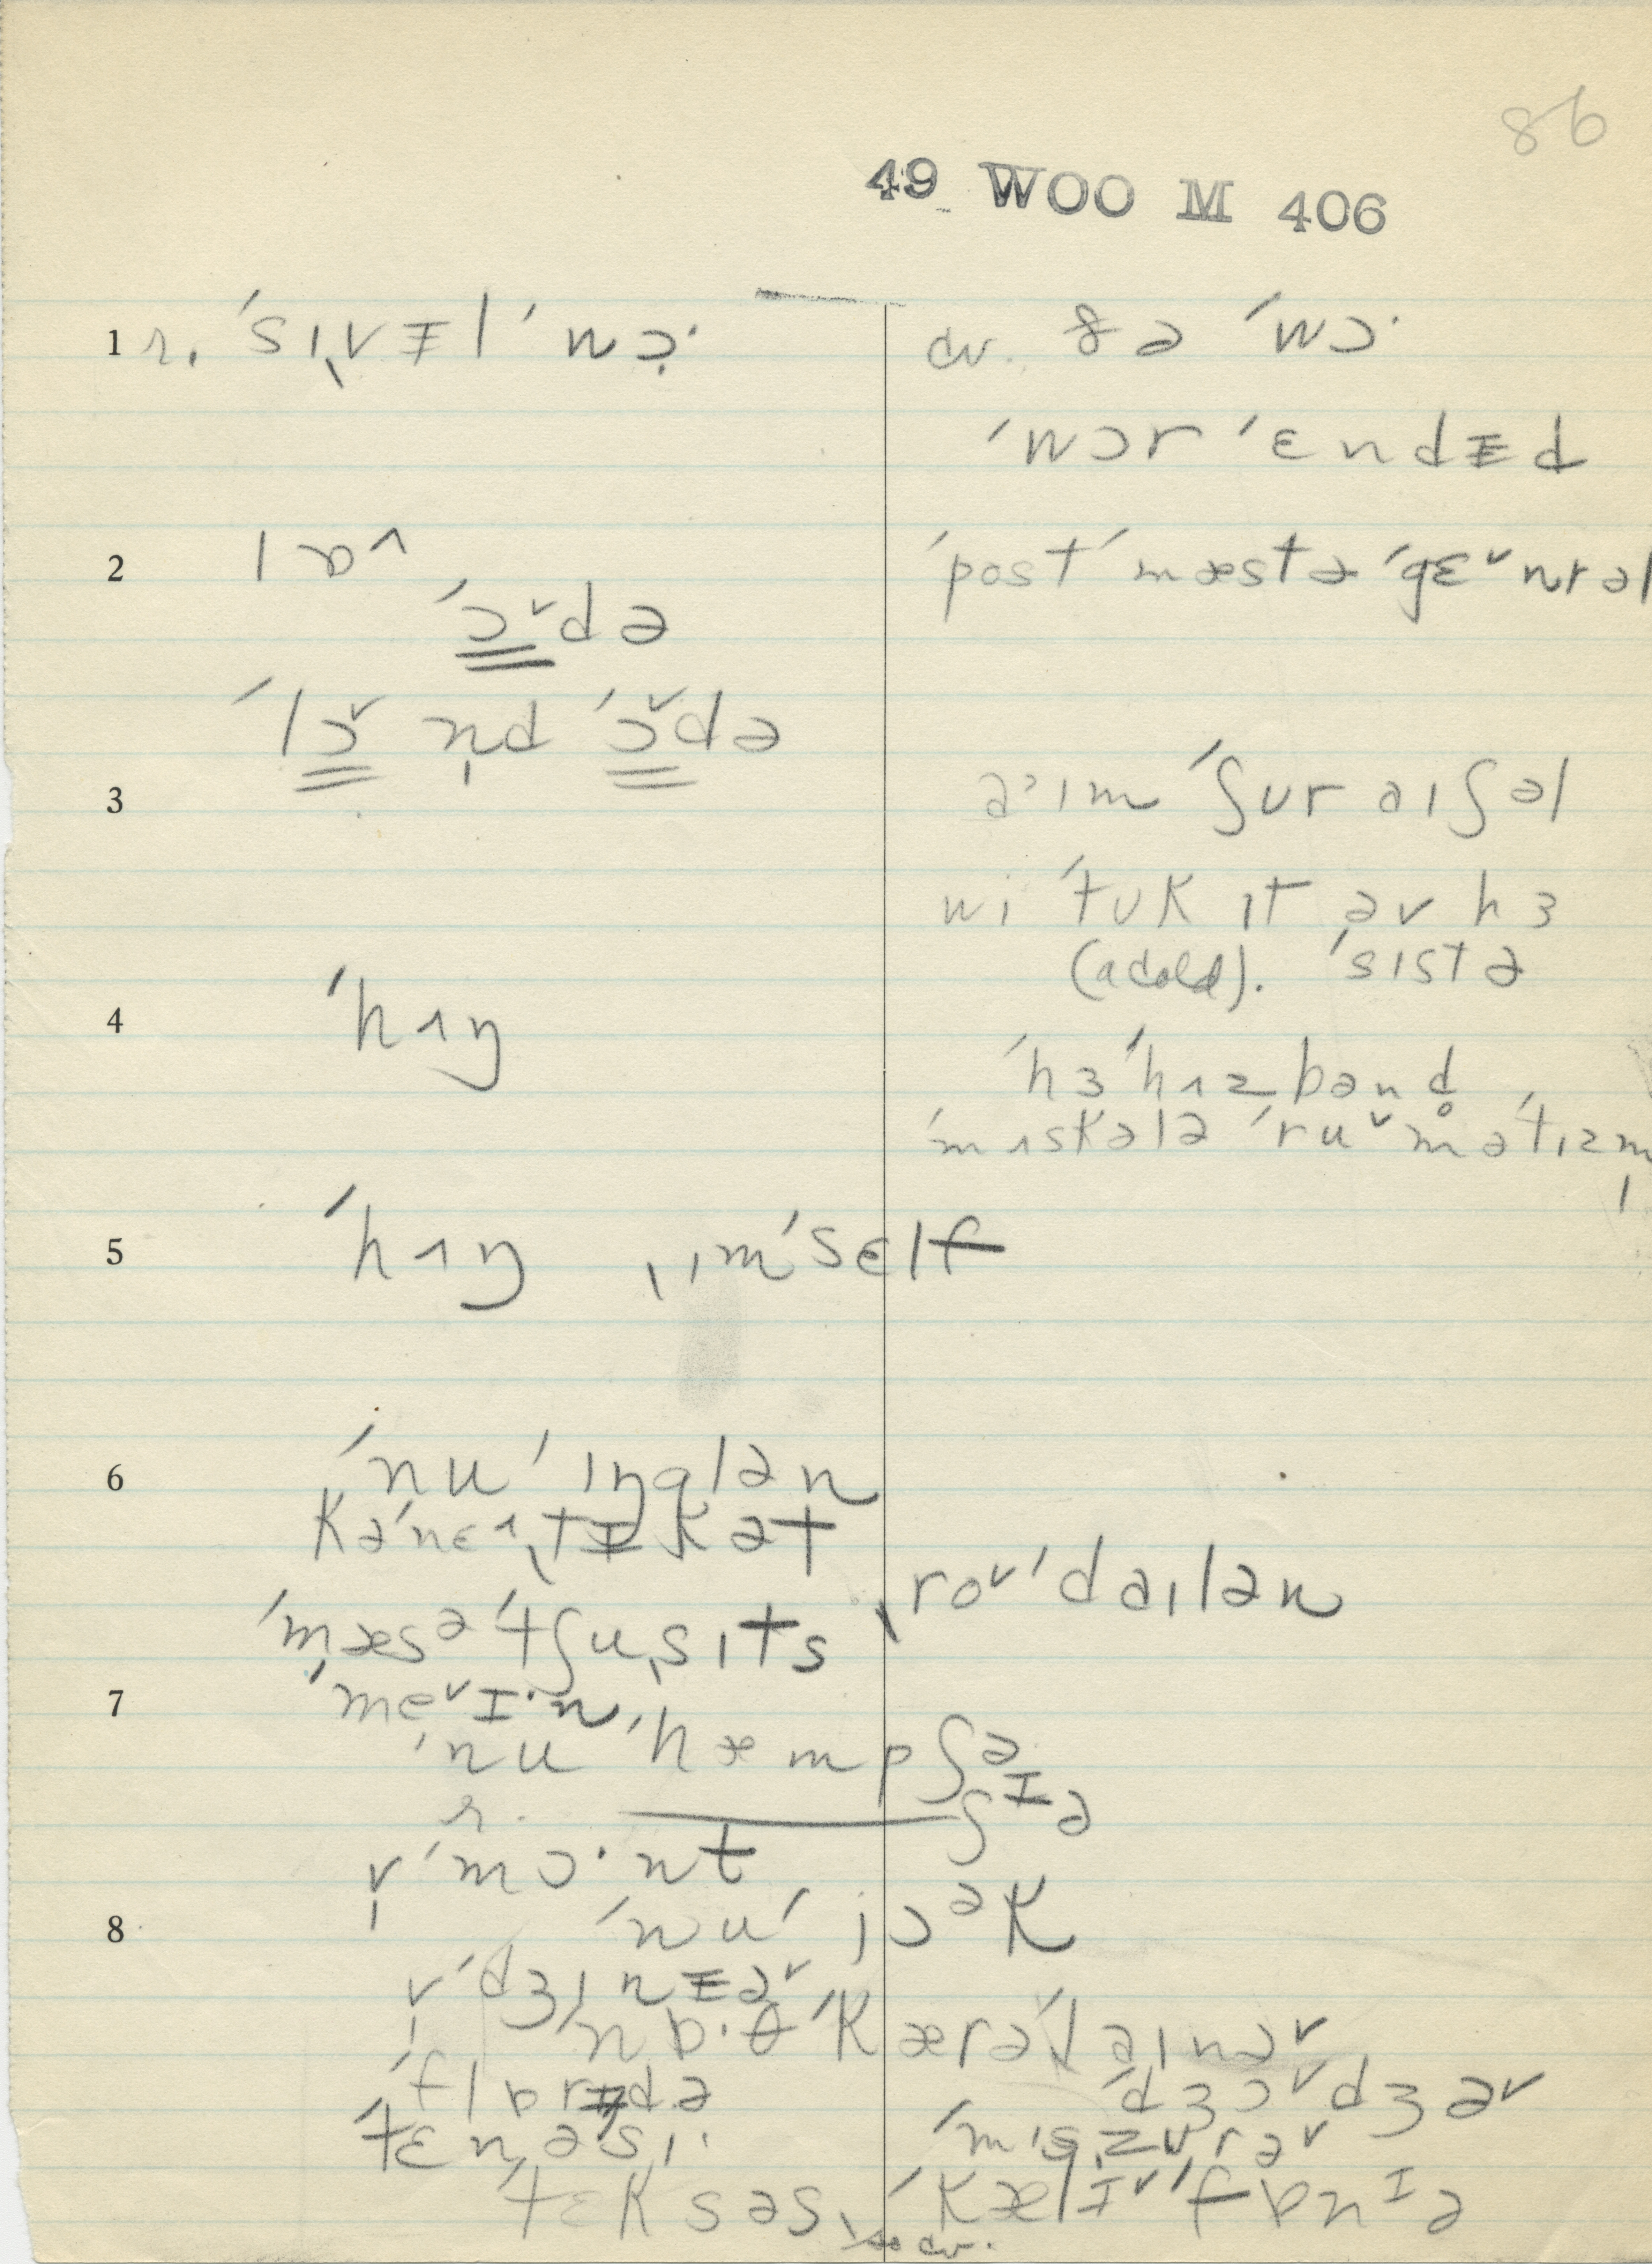 86
49 WOO M 406
1 r. ˈsɪˌvɪ̵l ˈwɔ̣·
cv. ðə ˈwɔ·
ˈwɔr ˈɛndɪ̵d
2 lɒ^
ˈpostˈmæstə ˈdʒɛ˅nrəl
ˈɔ˅də
ˈlɔ˅ n̩d ˈɔ˅də
3
aˈɪm ˈʃʊr aɪʃəl
wi ˈtʊk ɪt əv hɜ
(a cold). ˈsɪstə
4 ˈhʌŋ
ˈhɜ ˈhʌzbənd̥
ˈmʌskələ ˈru˅məˈtɪzm̩
5 ˈhʌŋ ˌɪmˈsɛlf
6 ˈnu ˈɪŋglən
kəˈnɛ^ˌtɪ̵kət
ˌro˅ˈdaɪlən
ˈmæsəˈtʃuˌsɪts
7 ˈme˅ɪ·n
ˈnu ˈhæmpʃə
r. ʃɪə
v̩ˈmɔ·nt
8 ˈnuˈjɔək
v̩ˈdʒɪnɪ̵ə˅
nɒ·θ ˈkærəˈlaɪnə˅
ˈflɒrɪ̵də
ˈdʒɔ˅dʒə˅
ˈtɛnəˈsi·
ˈmɪˌzʊrə˅
ˈtɛksəs
ˈkælɪ̵˅ˈfɒnɪə
cv.